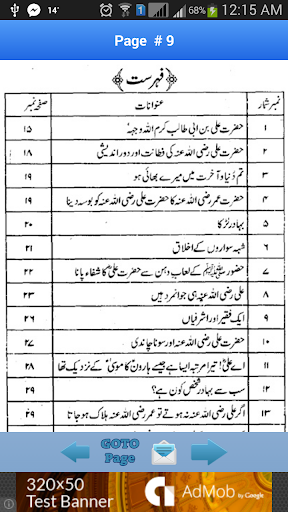 14°
68%
12:15 AM
Page # 9
فہرست
نمبر شمار عنوانات صفحہ نمبر
۱ حضرت علی بن ابی طالب کرم اللہ وجہہٗ ۱۵
۲ حضرت علی رضی اللہ عنہ کی فطانت اور دور اندیشی ۱۸
۳ تم دنیا و آخرت میں میرے بھائی ہو ۱۹
۴ حضرت عمر رضی اللہ عنہ کا حضرت علی رضی اللہ عنہ کو بوسہ دینا ۱۹
۵ بہادر لڑکا ۲۰
۶ شہسواروں کے اخلاق ۲۱
۷ حضور ﷺ کے لعاب دہن سے حضرت علیؓ کا شفاء پانا ۲۲
۸ علی رضی اللہ عنہ ہی جوانمرد ہیں ۲۳
۹ ایک فقیر اور اشرفیاں ۲۶
۱۰ حضرت علی رضی اللہ عنہ اور سونا چاندی ۲۷
۱۱ اے علیؓ! تیرا مرتبہ ایسا ہے جیسے ہارونؑ کا موسیٰؑ کے نزدیک تھا ۲۸
۱۲ سب سے بہادر شخص کون ہے؟ ۲۸
۱۳ اگر علی رضی اللہ عنہ نہ ہوتے تو عمر رضی اللہ عنہ ہلاک ہو جاتا ۲۹
GOTO
Page
320×50
Test Banner
AdMob
by Google